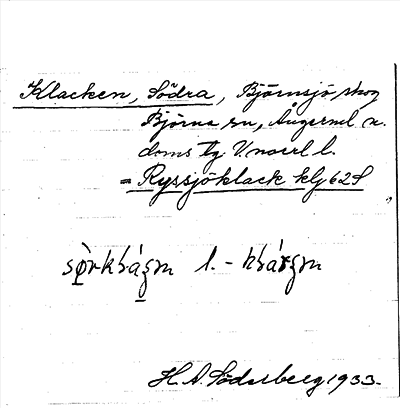 Klacken, Södra, Björnsjö skog
Björna sn, Ångerml. n.
doms lg V.norrl l.
= Ryssjöklack klj 62S
l. -
H. A. Söderberg 1933.